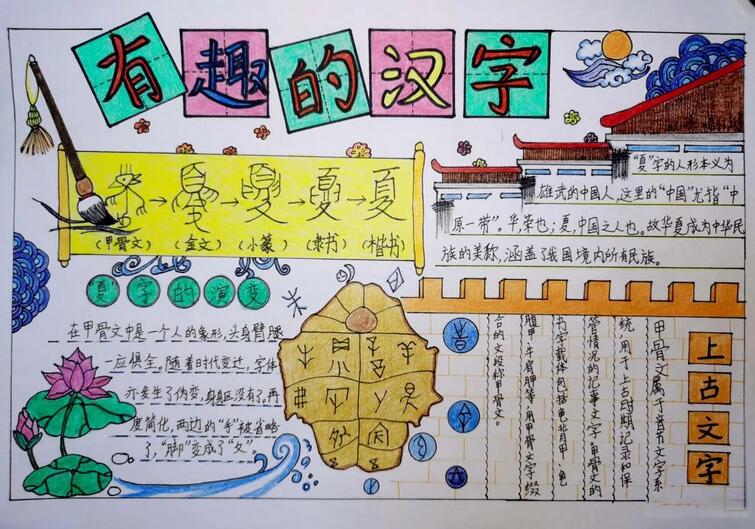 有趣的汉字
夏
(甲骨文) (金文) (小篆) (隶书) (楷书)
"夏"字的演变
在甲骨文中是一个人的象形,头身臂腿
一应俱全。随着时代变迁,字体
亦发生了伪变,身躯没有了,再
度简化,两边的"手"被省略
了,"脚"变成了"夂"。
"夏"字的人形本义为
雄武的中国人,这里的"中国"尤指"中
原一带"。华,荣也;夏,中国之人也。故华夏成为中华民
族的美称,涵盖了我国境内所有民族。
上古文字
甲骨文属于首节文字系
统,用于上古时期记录和保
管情况的记事文字。甲骨文的
书字载体包括龟背甲、龟
腹甲、牛肩胛等,用甲骨文字缀
合的文段称甲骨文。